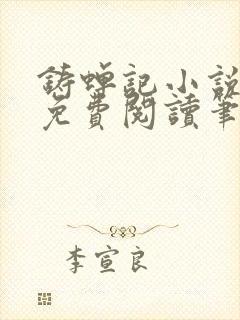 鋳蟬記小說
免費閱讀筆
李宣良